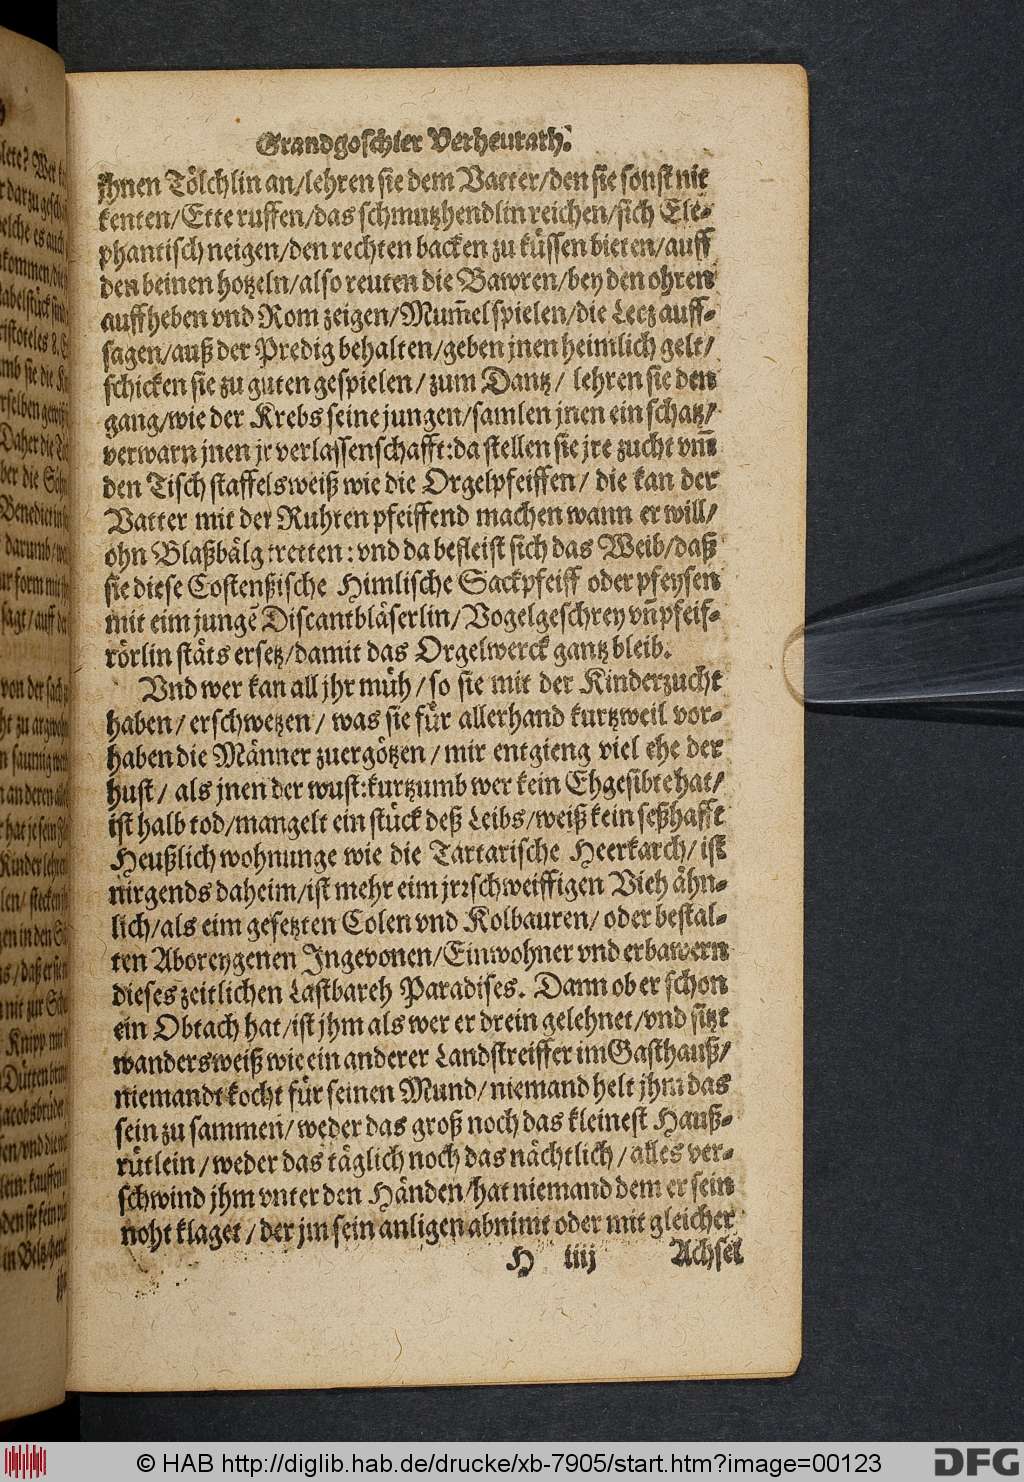 Grandgoschier Verheurath.
jhnen Tölchlin an/lehren sie dem Vatter/den sie sonst nit
kenten/Ette ruffen/das schmutzhendlin reichen/sich Ele-
phantisch neigen/den rechten backen zu küssen bieten/auff
den beinen hotzeln/also reuten die Bawren/bey den ohren
auffheben vnd Rom zeigen/Mum̃el spielen/die Lecz auff-
sagen/auß der Predig behalten/geben jnen heimlich gelt/
schicken sie zu guten gespielen/zum Dantz/ lehren sie den
gang/wie der Krebs seine jungen/samlen jnen ein schatz/
verwarn jnen jr verlassenschafft:da stellen sie jre zucht vm̃
den Tisch staffelsweiß wie die Orgelpfeiffen/ die kan der
Vatter mit der Ruhten pfeiffend machen wann er will/
ohn Blaßbälg tretten: vnd da befleist sich das Weib/daß
sie diese Costenßische Himlische Sackpfeiff oder pfeysen
mit eim jungẽ Discantbläserlin/Vogelgeschrey vñ pfeif-
rörlin stäts ersetz/damit das Orgelwerck gantz bleib.
Vnd wer kan all jhr müh/so sie mit der Kinderzucht
haben/ erschwetzen/ was sie für allerhand kurtzweil vor-
haben die Männer zuergötzen/ mir entgieng viel ehe der
hust/ als jnen der wust:kurtzumb wer kein Ehgesibte hat/
ist halb tod/mangelt ein stück deß Leibs/weiß kein seßhafft
Heußlich wohnunge wie die Tartarische Heerkarch/ ist
nirgends daheim/ist mehr eim jrꝛschweiffigen Vieh ähn-
lich/als eim gesetzten Colen vnd Kolbauren/ oder bestal-
ten Aboreygenen Ingevonen/Einwohner vnd erbawern
dieses zeitlichen Lastbareh Paradises. Dann ob er schon
ein Obtach hat/ist jhm als wer er drein gelehnet/vnd sitzt
wandersweiß wie ein anderer Landstreiffer im Gasthauß/
niemandt kocht für seinen Mund/ niemand helt jhm das
sein zu sammen/ weder das groß noch das kleinest Hauß-
rütlein/weder das täglich noch das nächtlich/alles ver-
schwind jhm vnter den Händen/hat niemand dem er sein
noht klaget/der jm sein anligen abnimt oder mit gleicher
H iiij Achsel
© HAB http://diglib.hab.de/drucke/xb-7905/start.htm?image=00123
DFG